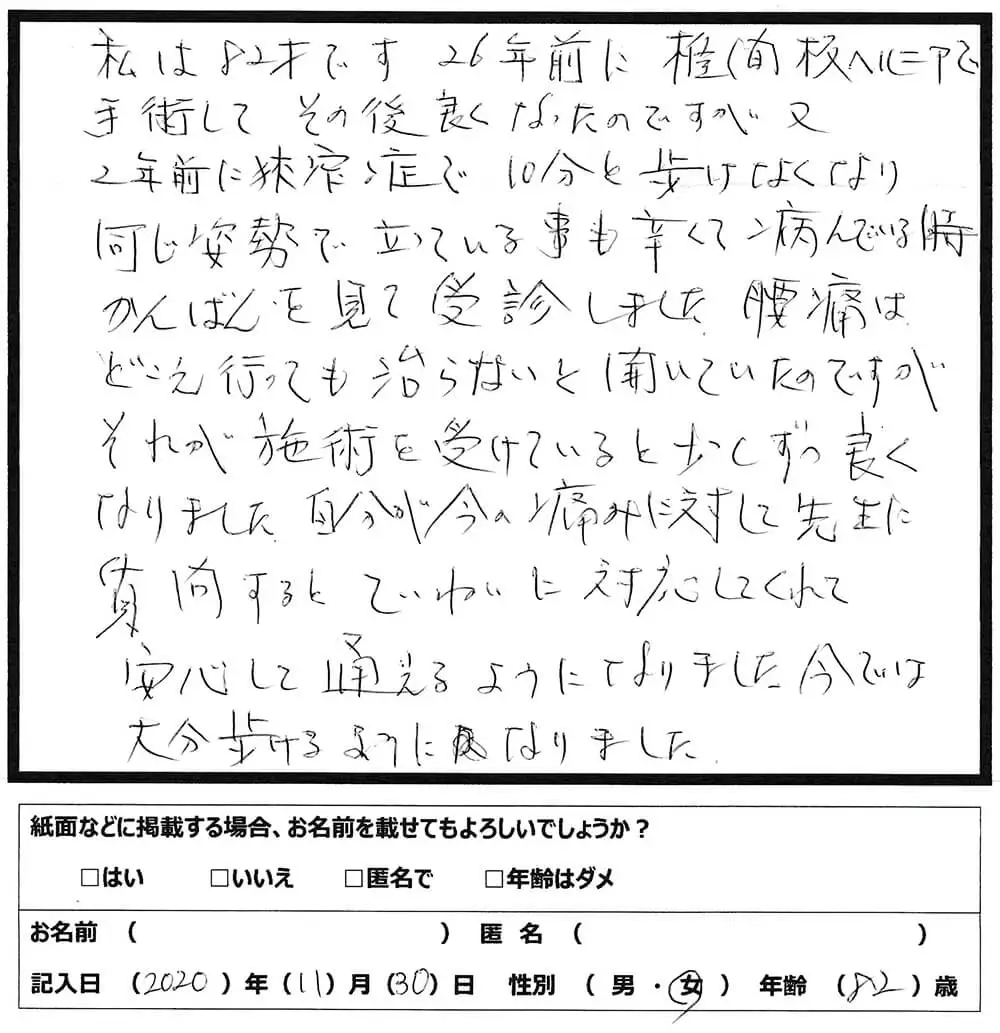 私は82才です 26年前に 椎間板ヘルニアで
手術して その後良くなったのですが又
2年前に狭窄症で 10分と歩けなくなり
同じ姿勢で立っている事も辛くて病んでいる時
かんばんを見て受診しました 腰痛は
どこえ行っても治らないと聞いていたのですが
それが施術を受けていると少しずつ良く
なりました 自分が今の痛みに対して先生に
質問すると ていねいに対応してくれて
安心して通えるようになりました 今では
大分歩けるようになりました
紙面などに掲載する場合、お名前を載せてもよろしいでしょうか？
□はい □いいえ □匿名で □年齢はダメ
お名前 （ ） 匿 名 （ ）
記入日 （2020）年（11）月（30）日 性別 （ 男 ・ 女 ） 年齢 （82）歳